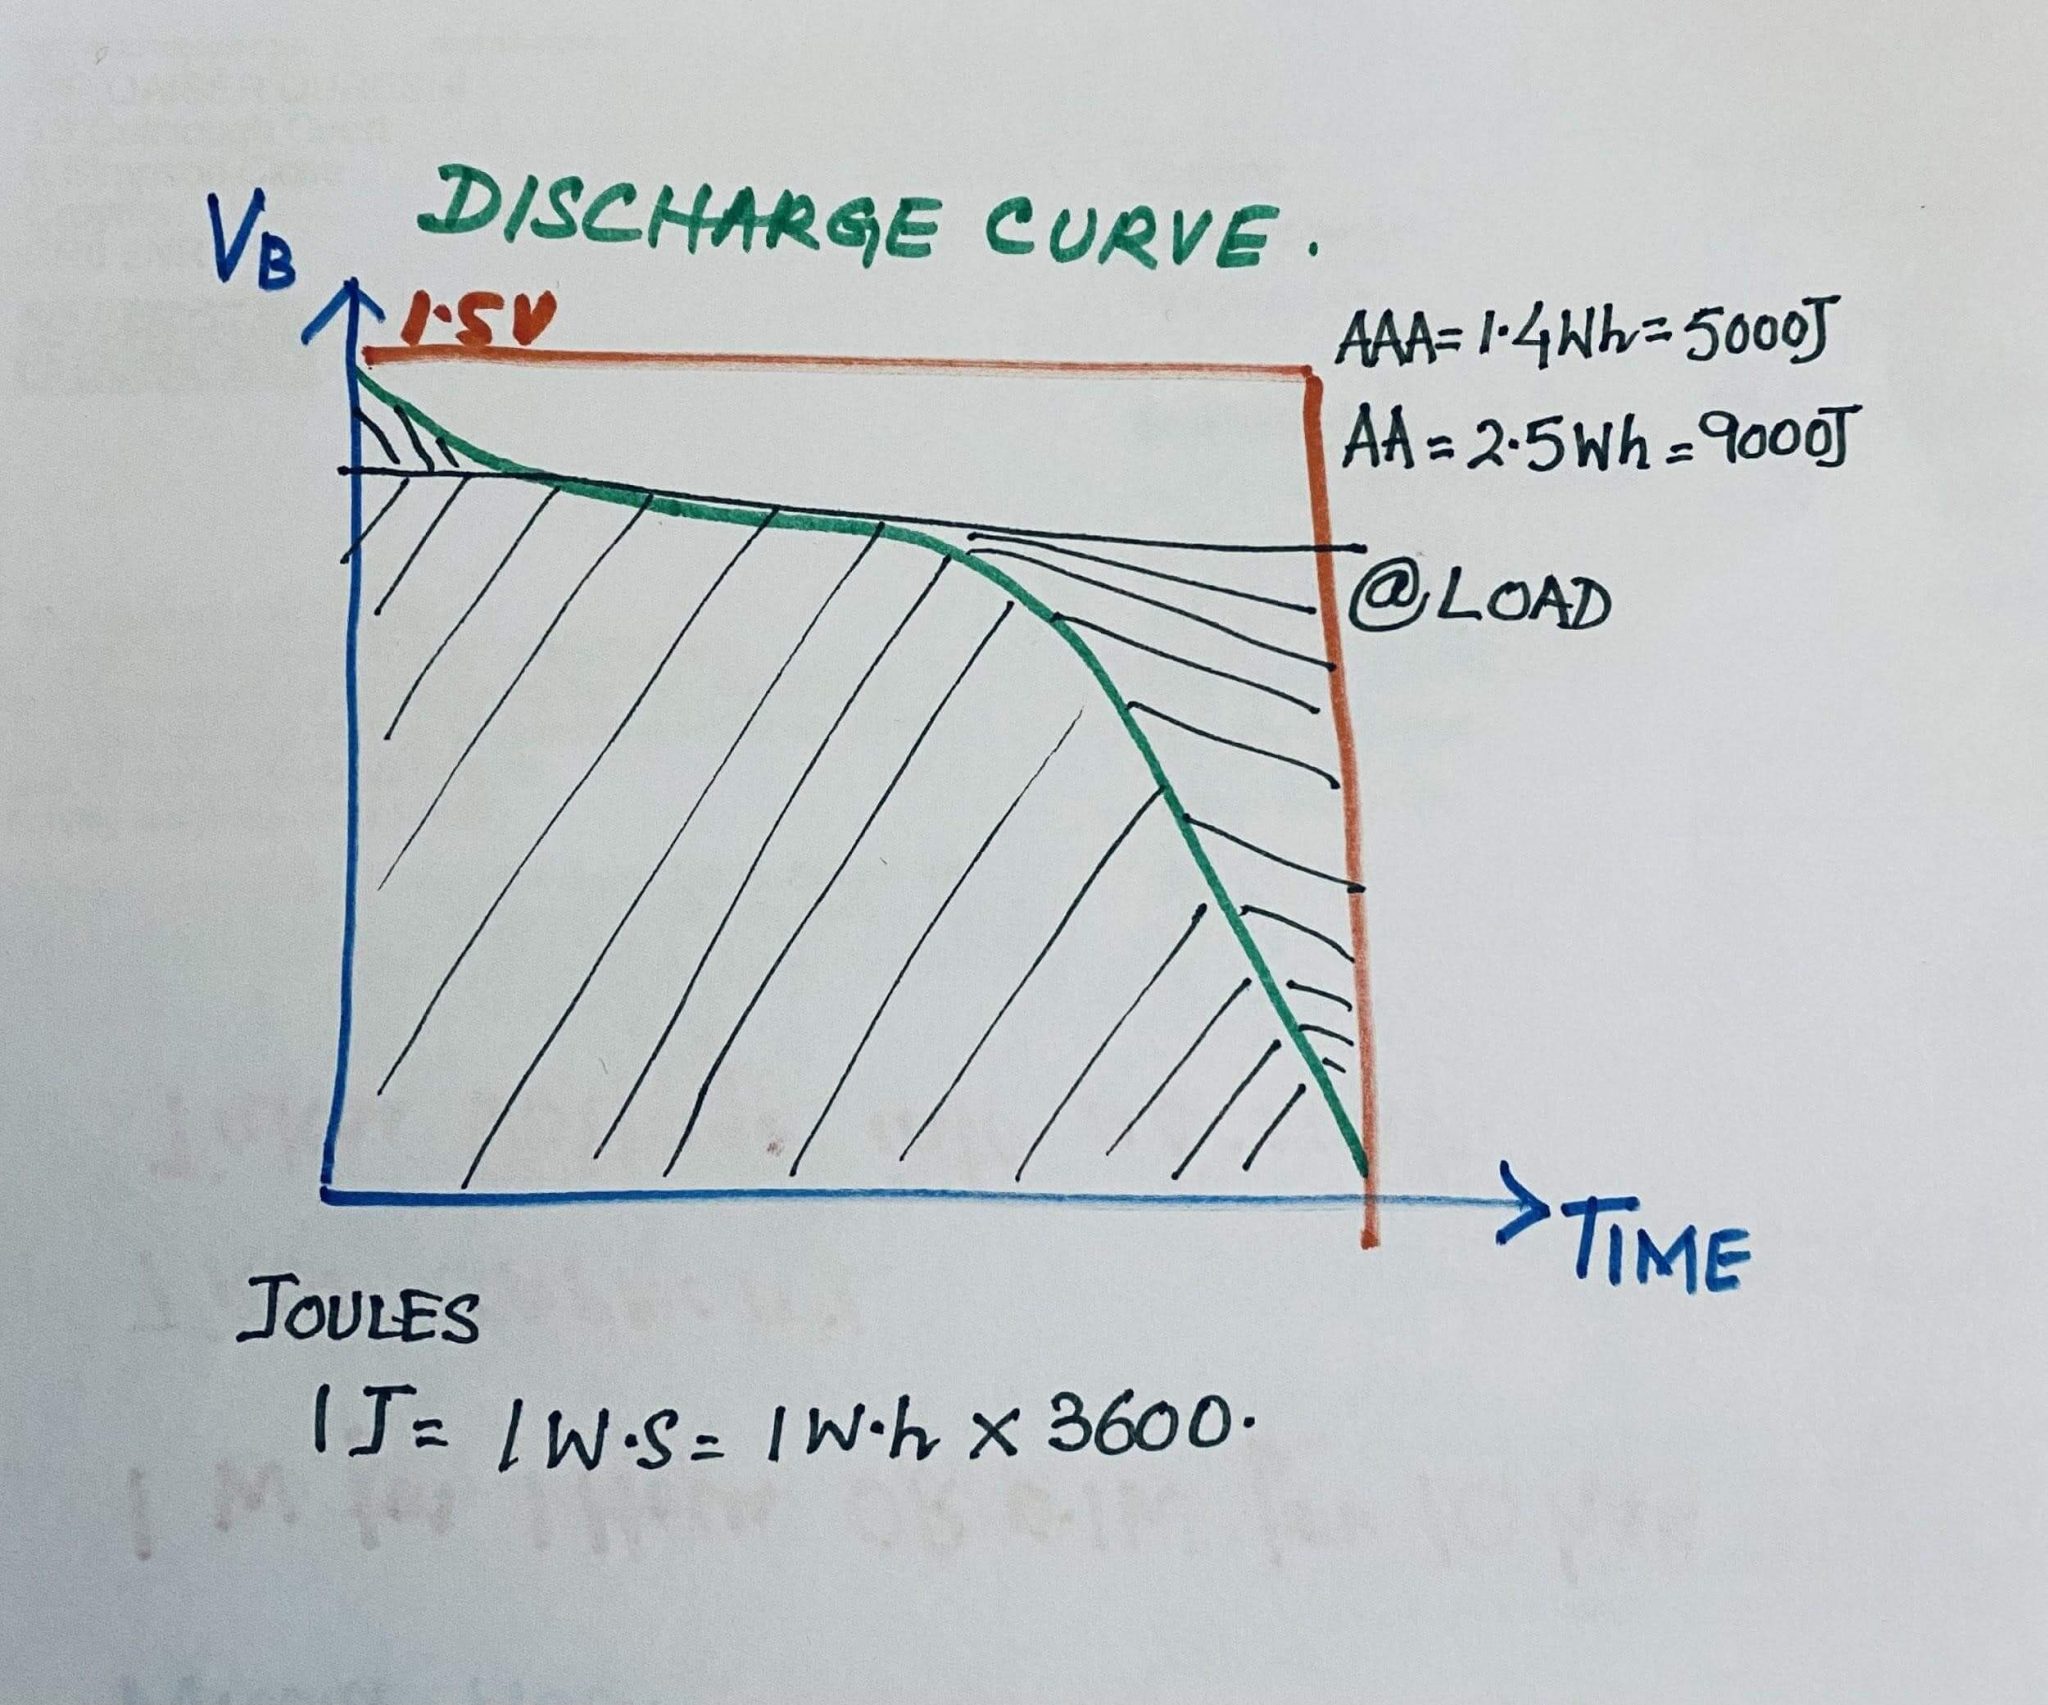 DISCHARGE CURVE.
VB
1.5V
AAA = 1.4Wh = 5000J
AA = 2.5Wh = 9000J
@LOAD
TIME
JOULES
1 J = 1 W.S = 1 W.h x 3600.